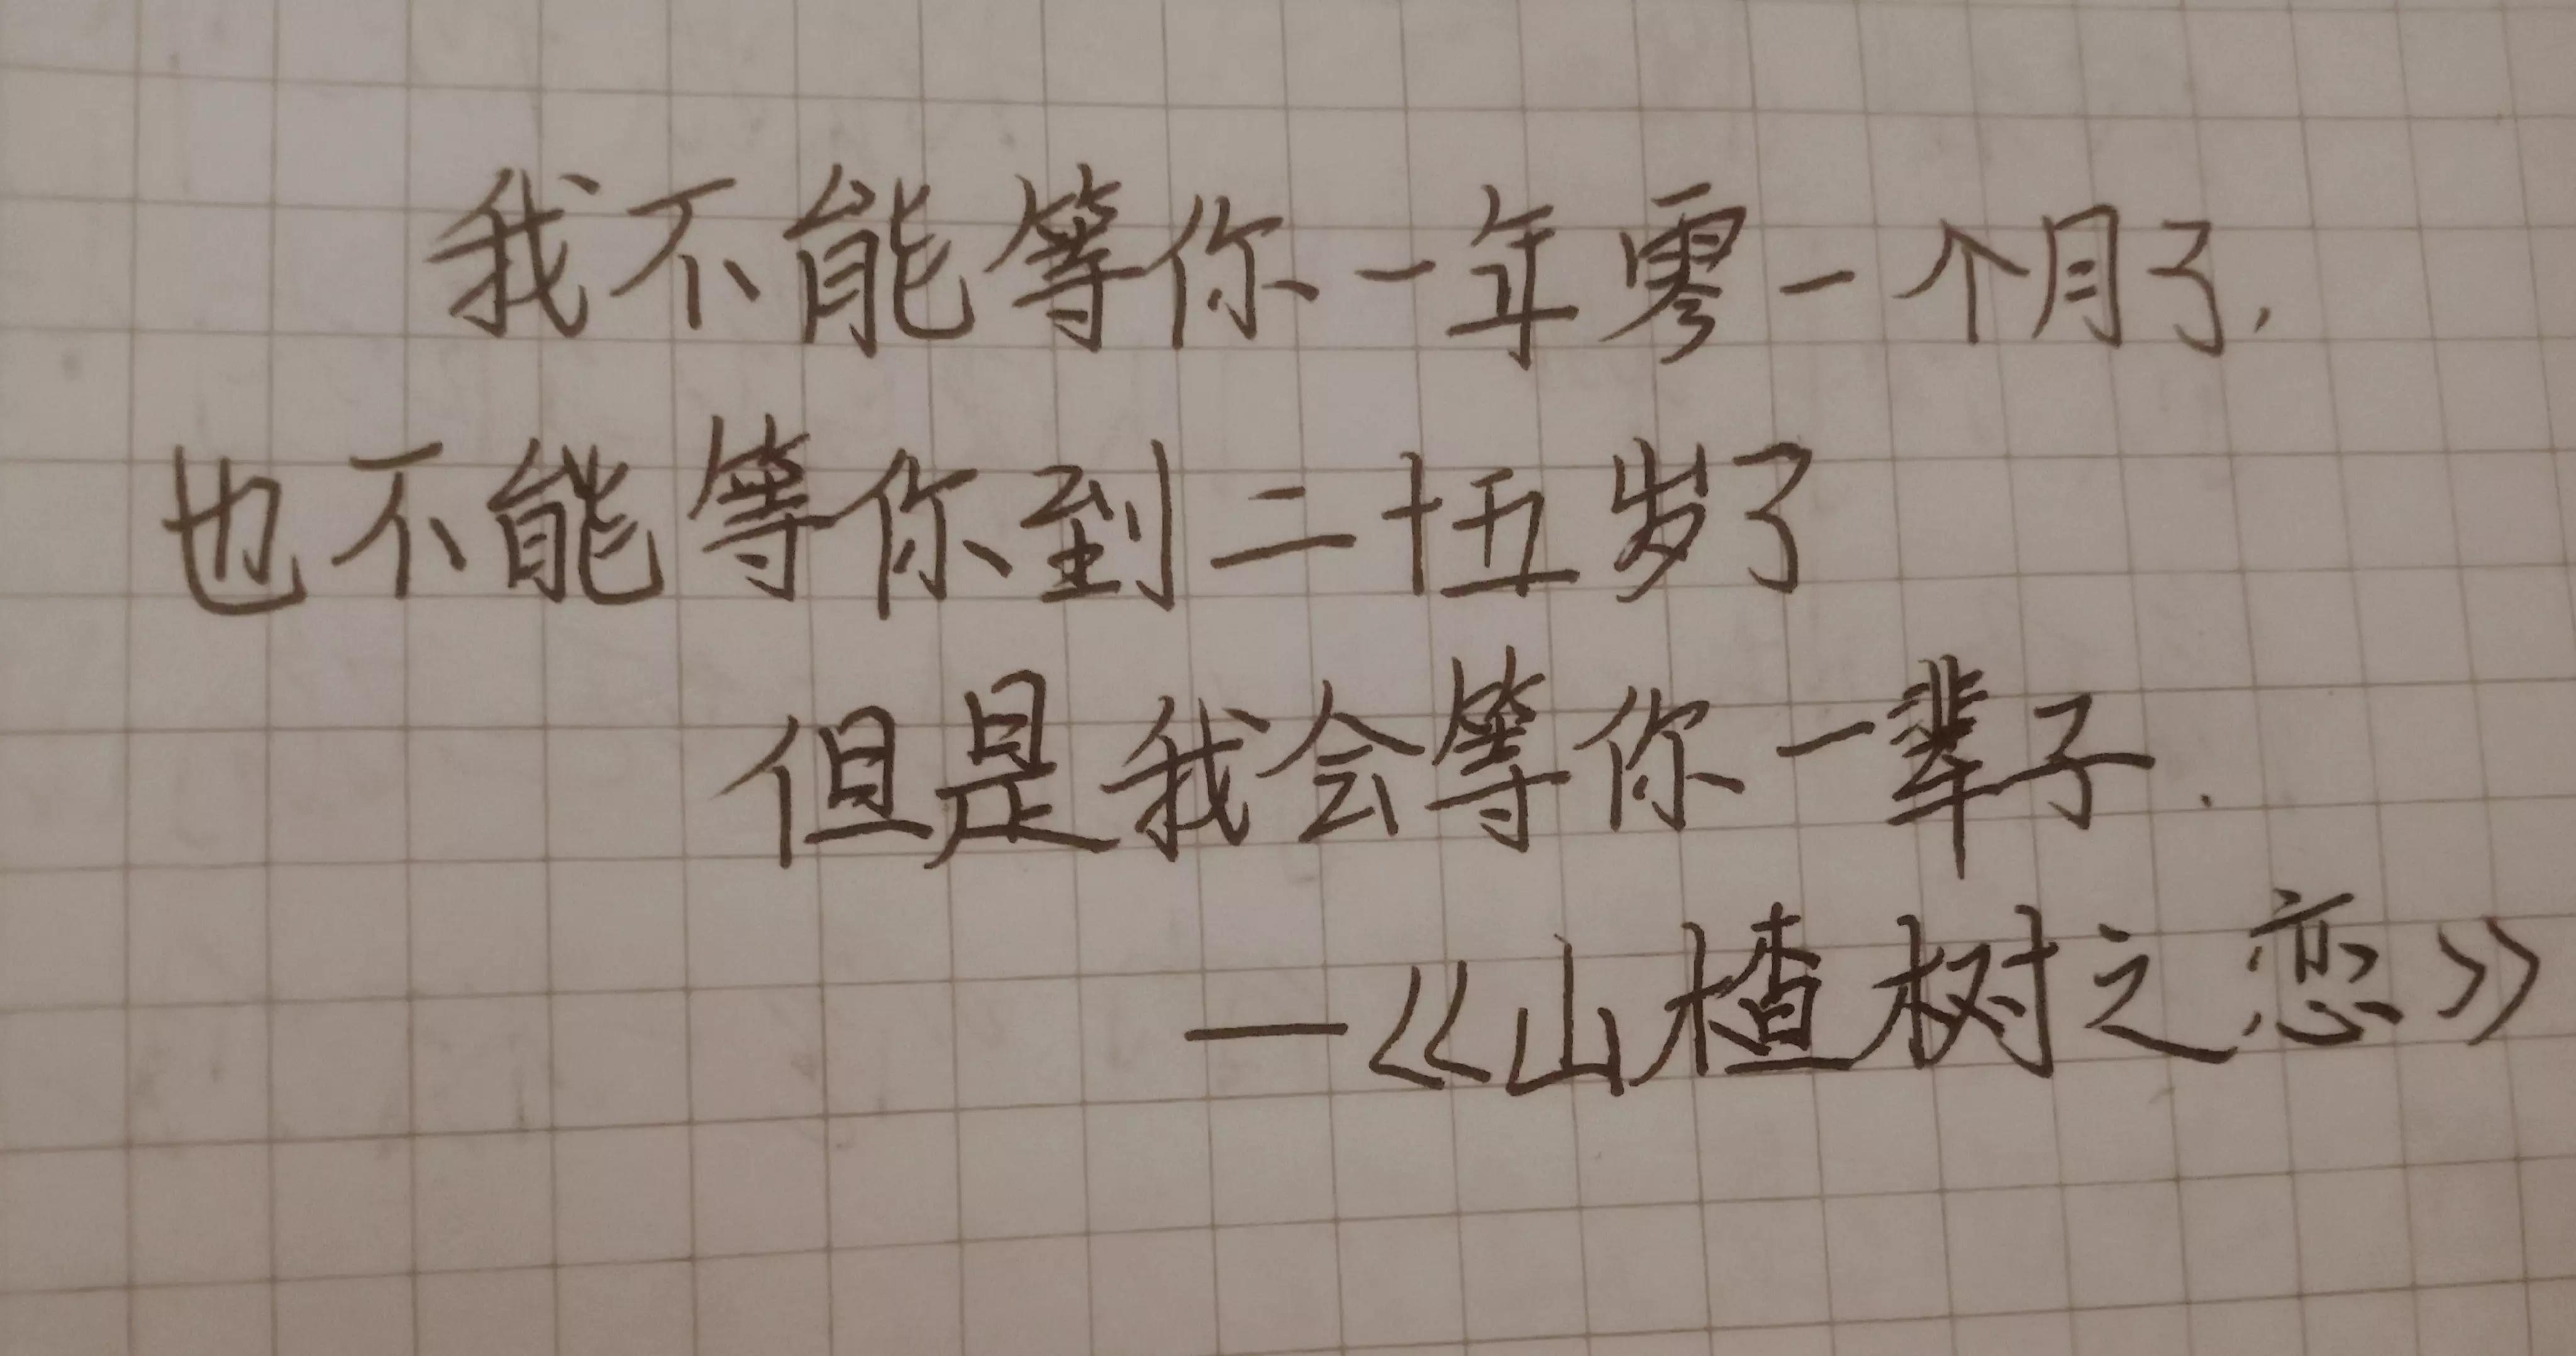 我不能等你一年零一个月了,
也不能等你到二十五岁了
但是我会等你一辈子.
—《山楂树之恋》